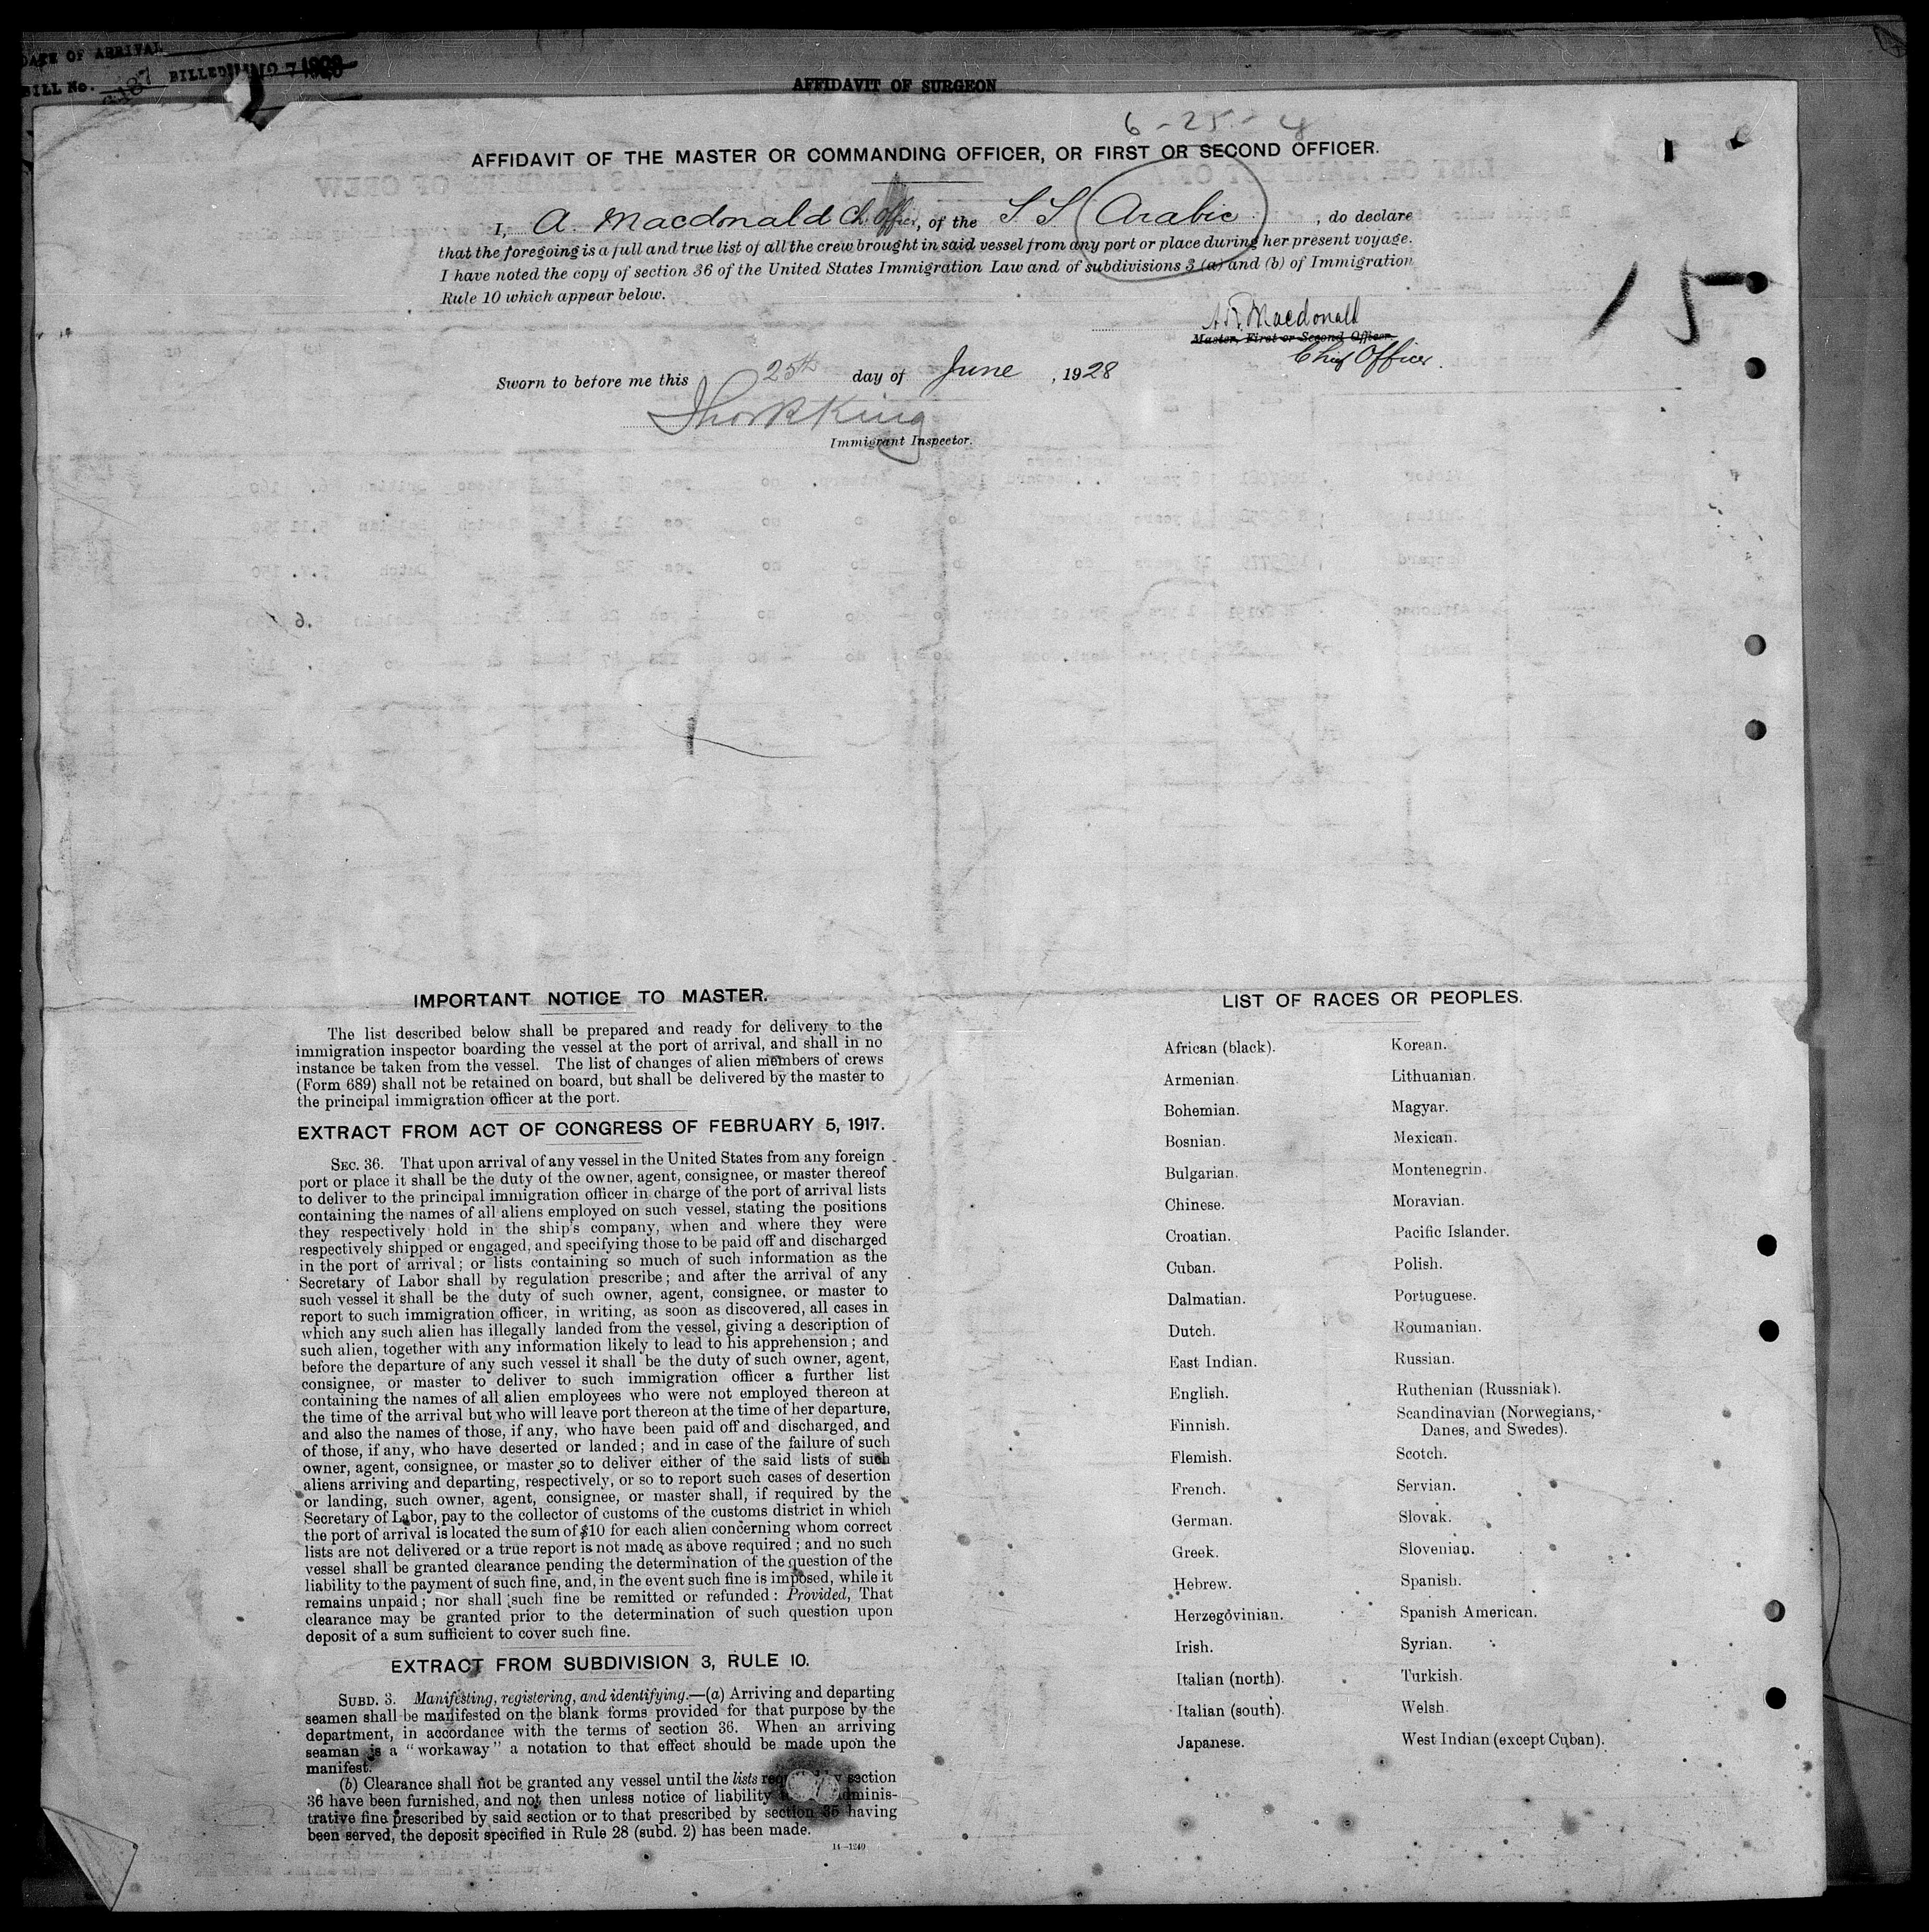 DATE OF ARRIVAL
BILL No. BILLED
AFFIDAVIT OF SURGEON
6-25-
AFFIDAVIT OF THE MASTER OR COMMANDING OFFICER, OR FIRST OR SECOND OFFICER.
I, A. Macdonald Ch. Officer, of the S S Arabic, do declare
that the foregoing is a full and true list of all the crew brought in said vessel from any port or place during her present voyage.
I have noted the copy of section 36 of the United States Immigration Law and of subdivisions 3 (a) and (b) of Immigration
Rule 10 which appear below.
15
A.R. Macdonald
Master, First or Second Officer.
Chief Officer.
Sworn to before me this 25th day of June, 1928
King
Immigrant Inspector.
IMPORTANT NOTICE TO MASTER.
The list described below shall be prepared and ready for delivery to the
immigration inspector boarding the vessel at the port of arrival, and shall in no
instance be taken from the vessel. The list of changes of alien members of crews
(Form 689) shall not be retained on board, but shall be delivered by the master to
the principal immigration officer at the port.
EXTRACT FROM ACT OF CONGRESS OF FEBRUARY 5, 1917.
SEC. 36. That upon arrival of any vessel in the United States from any foreign
port or place it shall be the duty of the owner, agent, consignee, or master thereof
to deliver to the principal immigration officer in charge of the port of arrival lists
containing the names of all aliens employed on such vessel, stating the positions
they respectively hold in the ship's company, when and where they were
respectively shipped or engaged, and specifying those to be paid off and discharged
in the port of arrival; or lists containing so much of such information as the
Secretary of Labor shall by regulation prescribe; and after the arrival of any
such vessel it shall be the duty of such owner, agent, consignee, or master to
report to such immigration officer, in writing, as soon as discovered, all cases in
which any such alien has illegally landed from the vessel, giving a description of
such alien, together with any information likely to lead to his apprehension; and
before the departure of any such vessel it shall be the duty of such owner, agent,
consignee, or master to deliver to such immigration officer a further list
containing the names of all alien employees who were not employed thereon at
the time of the arrival but who will leave port thereon at the time of her departure,
and also the names of those, if any, who have been paid off and discharged, and
of those, if any, who have deserted or landed; and in case of the failure of such
owner, agent, consignee, or master so to deliver either of the said lists of such
aliens arriving and departing, respectively, or so to report such cases of desertion
or landing, such owner, agent, consignee, or master shall, if required by the
Secretary of Labor, pay to the collector of customs of the customs district in which
the port of arrival is located the sum of $10 for each alien concerning whom correct
lists are not delivered or a true report is not made as above required; and no such
vessel shall be granted clearance pending the determination of the question of the
liability to the payment of such fine, and, in the event such fine is imposed, while it
remains unpaid; nor shall such fine be remitted or refunded: Provided, That
clearance may be granted prior to the determination of such question upon
deposit of a sum sufficient to cover such fine.
EXTRACT FROM SUBDIVISION 3, RULE 10.
SUBD. 3. Manifesting, registering, and identifying.—(a) Arriving and departing
seamen shall be manifested on the blank forms provided for that purpose by the
department, in accordance with the terms of section 36. When an arriving
seaman is a "workaway" a notation to that effect should be made upon the
manifest.
(b) Clearance shall not be granted any vessel until the lists section
36 have been furnished, and not then unless notice of liability adminis-
trative fine prescribed by said section or to that prescribed by section 35 having
been served, the deposit specified in Rule 28 (subd. 2) has been made.
14—1240
LIST OF RACES OR PEOPLES.
African (black).
Armenian.
Bohemian.
Bosnian.
Bulgarian.
Chinese.
Croatian.
Cuban.
Dalmatian.
Dutch.
East Indian.
English.
Finnish.
Flemish.
French.
German.
Greek.
Hebrew.
Herzegovinian.
Irish.
Italian (north).
Italian (south).
Japanese.
Korean.
Lithuanian.
Magyar.
Mexican.
Montenegrin.
Moravian.
Pacific Islander.
Polish.
Portuguese.
Roumanian.
Russian.
Ruthenian (Russniak).
Scandinavian (Norwegians,
Danes, and Swedes).
Scotch.
Servian.
Slovak.
Slovenian.
Spanish.
Spanish American.
Syrian.
Turkish.
Welsh.
West Indian (except Cuban).